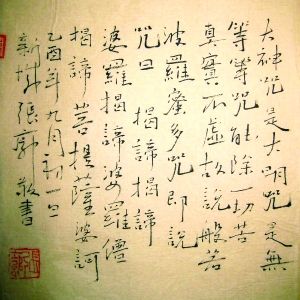 大神咒是大明咒是無
等等咒能除一切苦
真實不虛故說般若
波羅蜜多咒即說
咒曰 揭諦揭諦
婆羅揭諦婆羅僧
揭諦菩提薩婆訶
乙酉年九月初一日
新張郭敬書